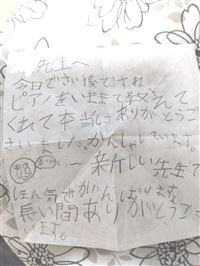 先生へ
今日でさい後ですね
ピアノをいままで教えて
くれて本当にありがとうご
ざいました。かんしゃしています。
新しい先生で
ほん気でがんばります。
長い間ありがとうご
います。